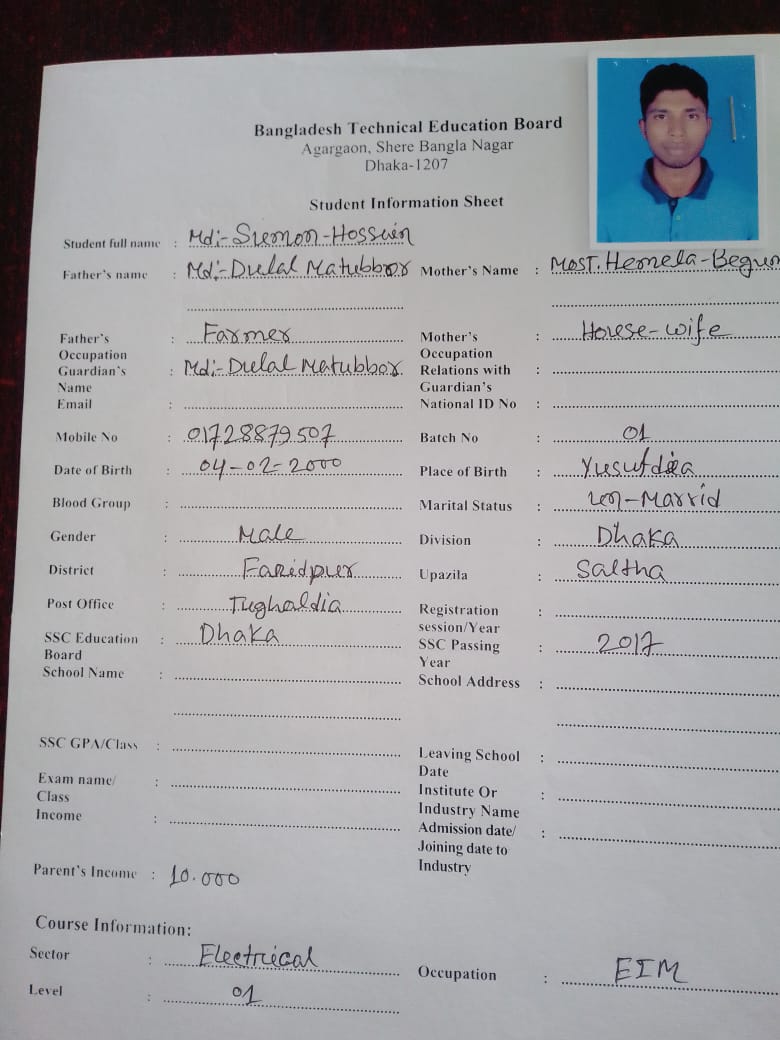 Bangladesh Technical Education Board
Agargaon, Shere Bangla Nagar
Dhaka-1207
Student Information Sheet
Student full name : Md:-Siemon-Hossain
Father's name : Md:-Dulal Matubbor Mother's Name : MosT. Hemela-Begum
Father's Occupation : Farmer Mother's Occupation : House-wife
Guardian's Name : Md:-Dulal Matubbor Relations with Guardian's :
Email : National ID No :
Mobile No : 01728879507 Batch No : 01
Date of Birth : 04-02-2000 Place of Birth : Yusufdia
Blood Group : Marital Status : un-Marrid
Gender : Male Division : Dhaka
District : Faridpur Upazila : Saltha
Post Office : Tughaldia Registration session/Year :
SSC Education Board : Dhaka SSC Passing Year : 2017
School Name : School Address :
SSC GPA/Class : Leaving School Date :
Exam name/ Class : Institute Or Industry Name :
Income : Admission date/ Joining date to Industry :
Parent's Income : 10.000
Course Information:
Sector : Electrical Occupation : EIM
Level : 01